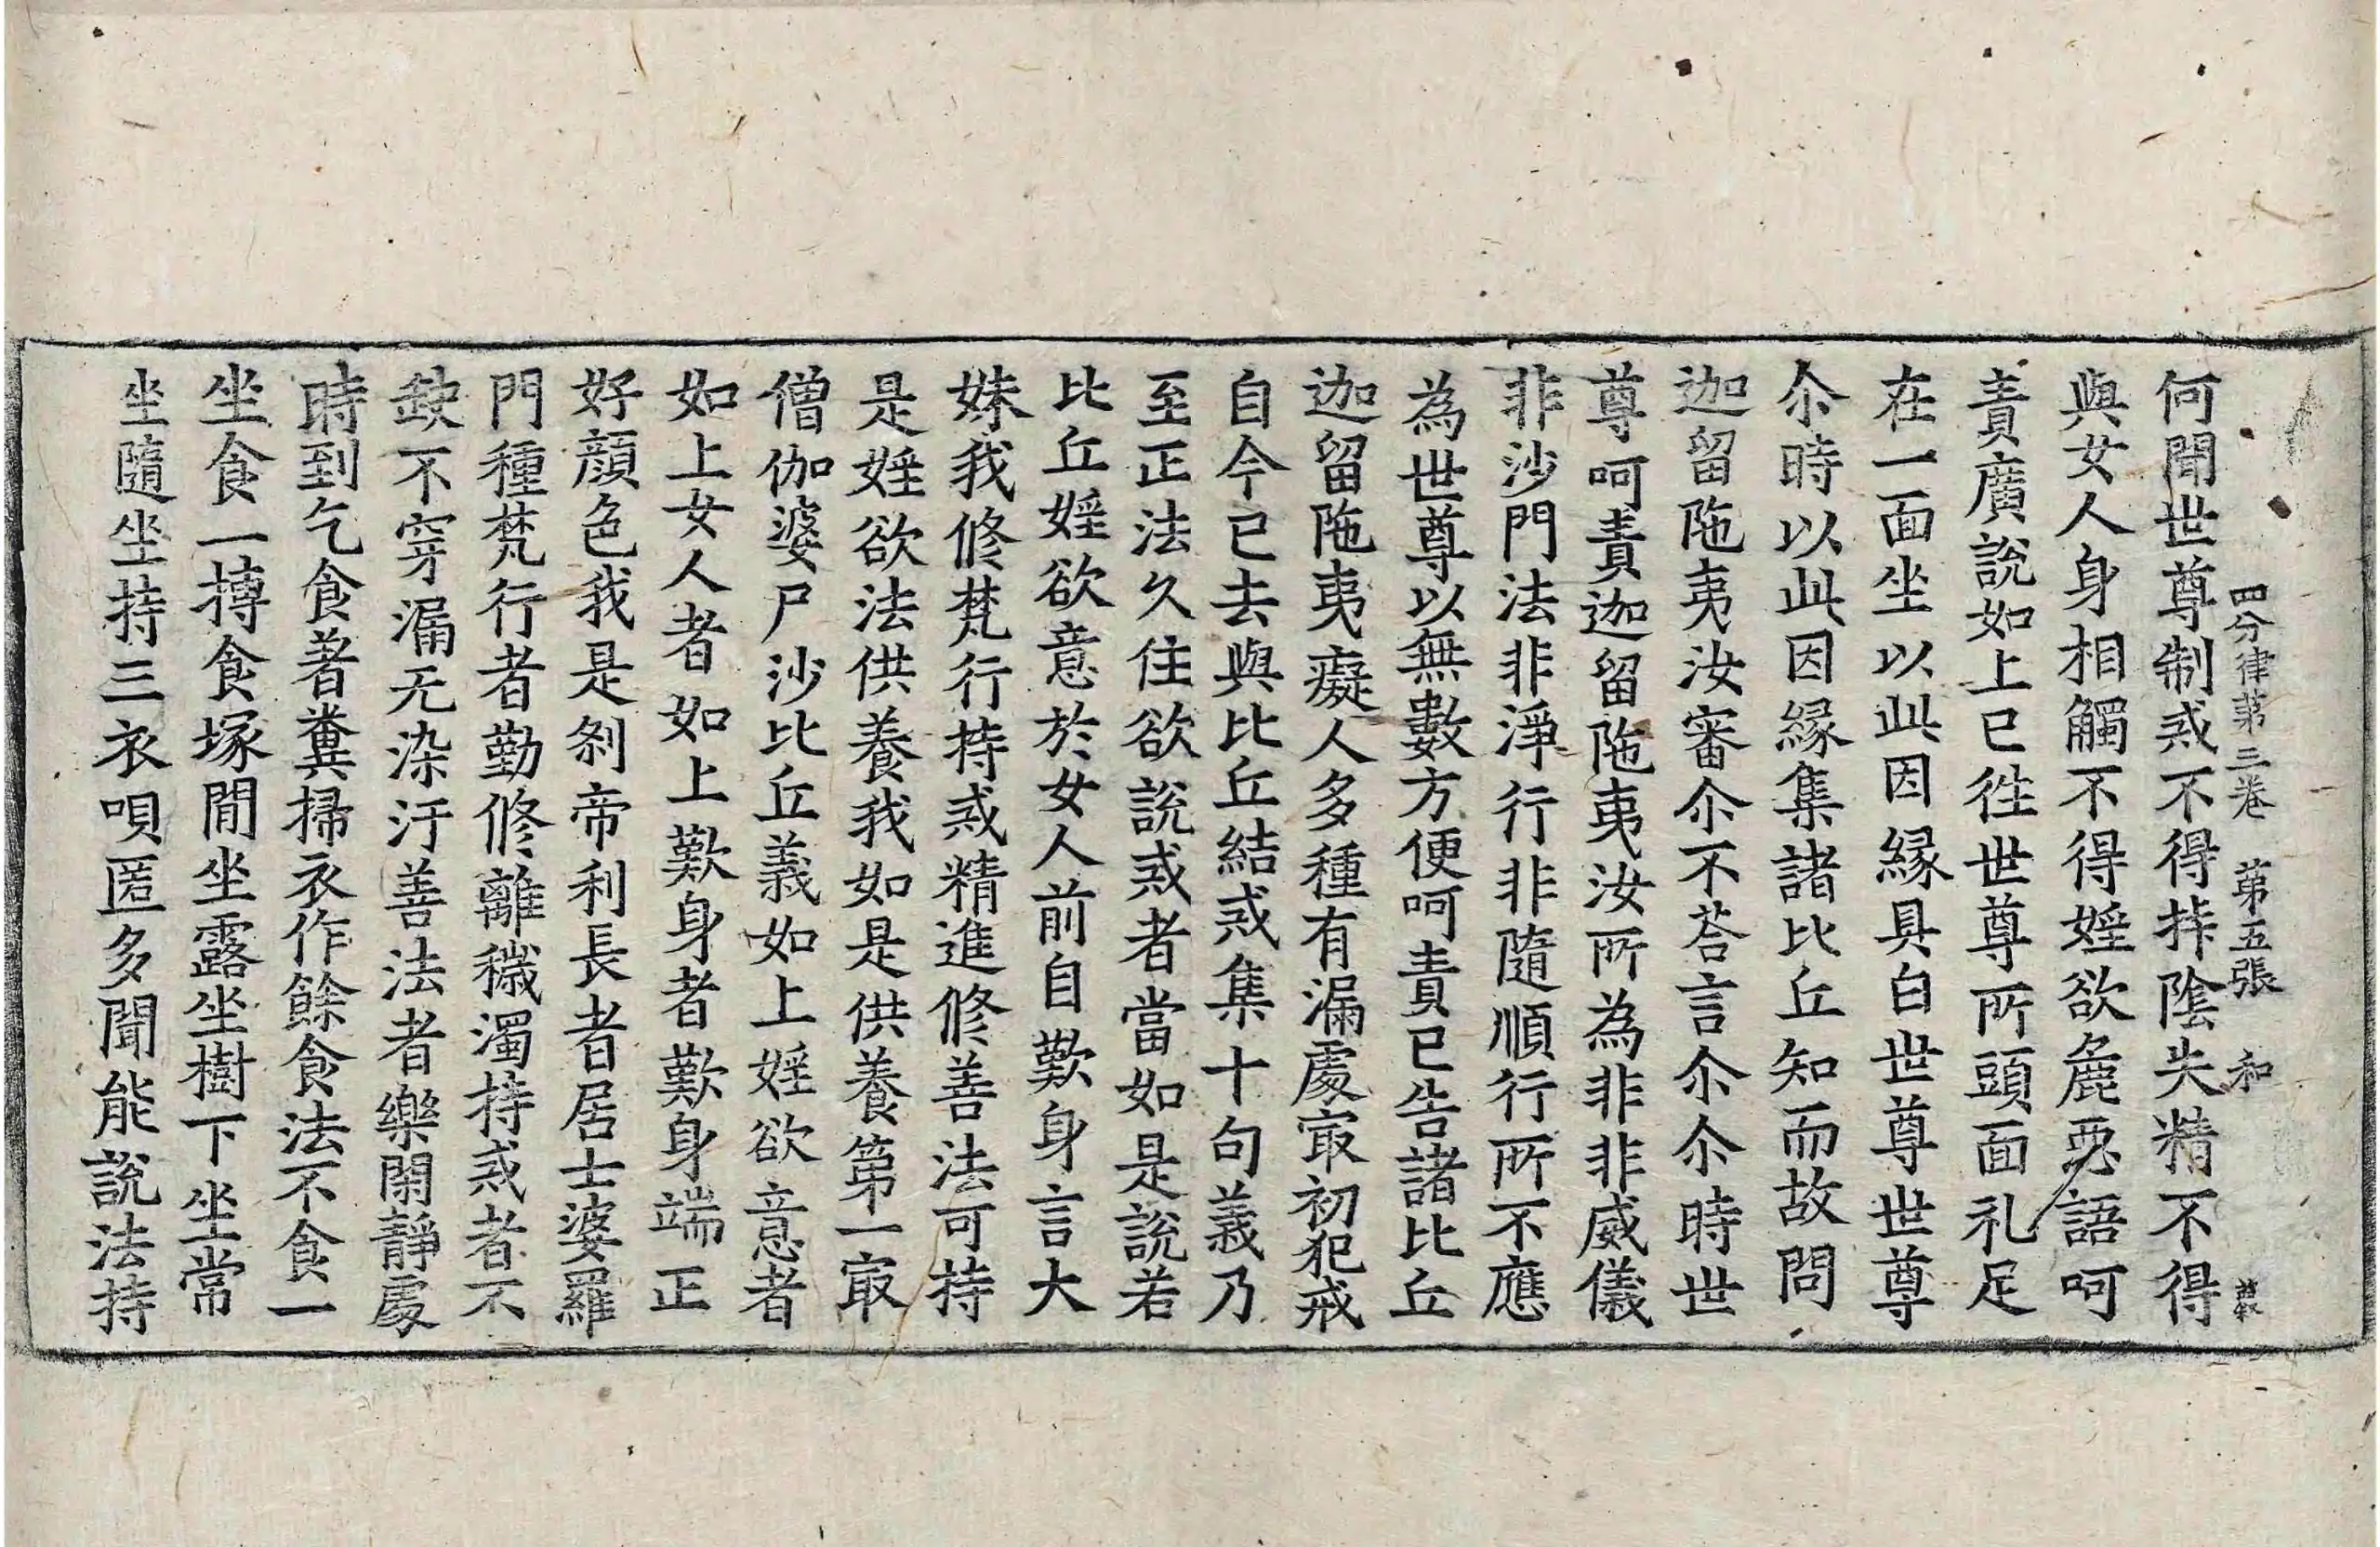 四分律苐三卷 苐五張 和
何聞世尊制戒不得挊陰失精不得
與女人身相觸不得婬欲麁惡語呵
責廣說如上已徃世尊所頭面礼足
在一面坐以此因緣具白世尊世尊
尒時以此因緣集諸比丘知而故問
迦留陁夷汝審尒不荅言尒尒時世
尊呵責迦留陁夷汝所為非非威儀
非沙門法非淨行非隨順行所不應
為世尊以無數方便呵責已告諸比丘
迦留陁夷癡人多種有漏處㝡初犯戒
自今已去與比丘結戒集十句義乃
至正法久住欲說戒者當如是說若
比丘婬欲意於女人前自歎身言大
妹我修梵行持戒精進修善法可持
是婬欲法供養我如是供養第一㝡
僧伽婆尸沙比丘義如上婬欲意者
如上女人者如上歎身者歎身端正
好顏色我是剎帝利長者居士婆羅
門種梵行者勤修離穢濁持戒者不
缺不穿漏无染汙善法者樂閑靜處
時到乞食著糞掃衣作餘食法不食一
坐食一摶食塚間坐露坐樹下坐常
坐隨坐持三衣唄匿多聞能說法持